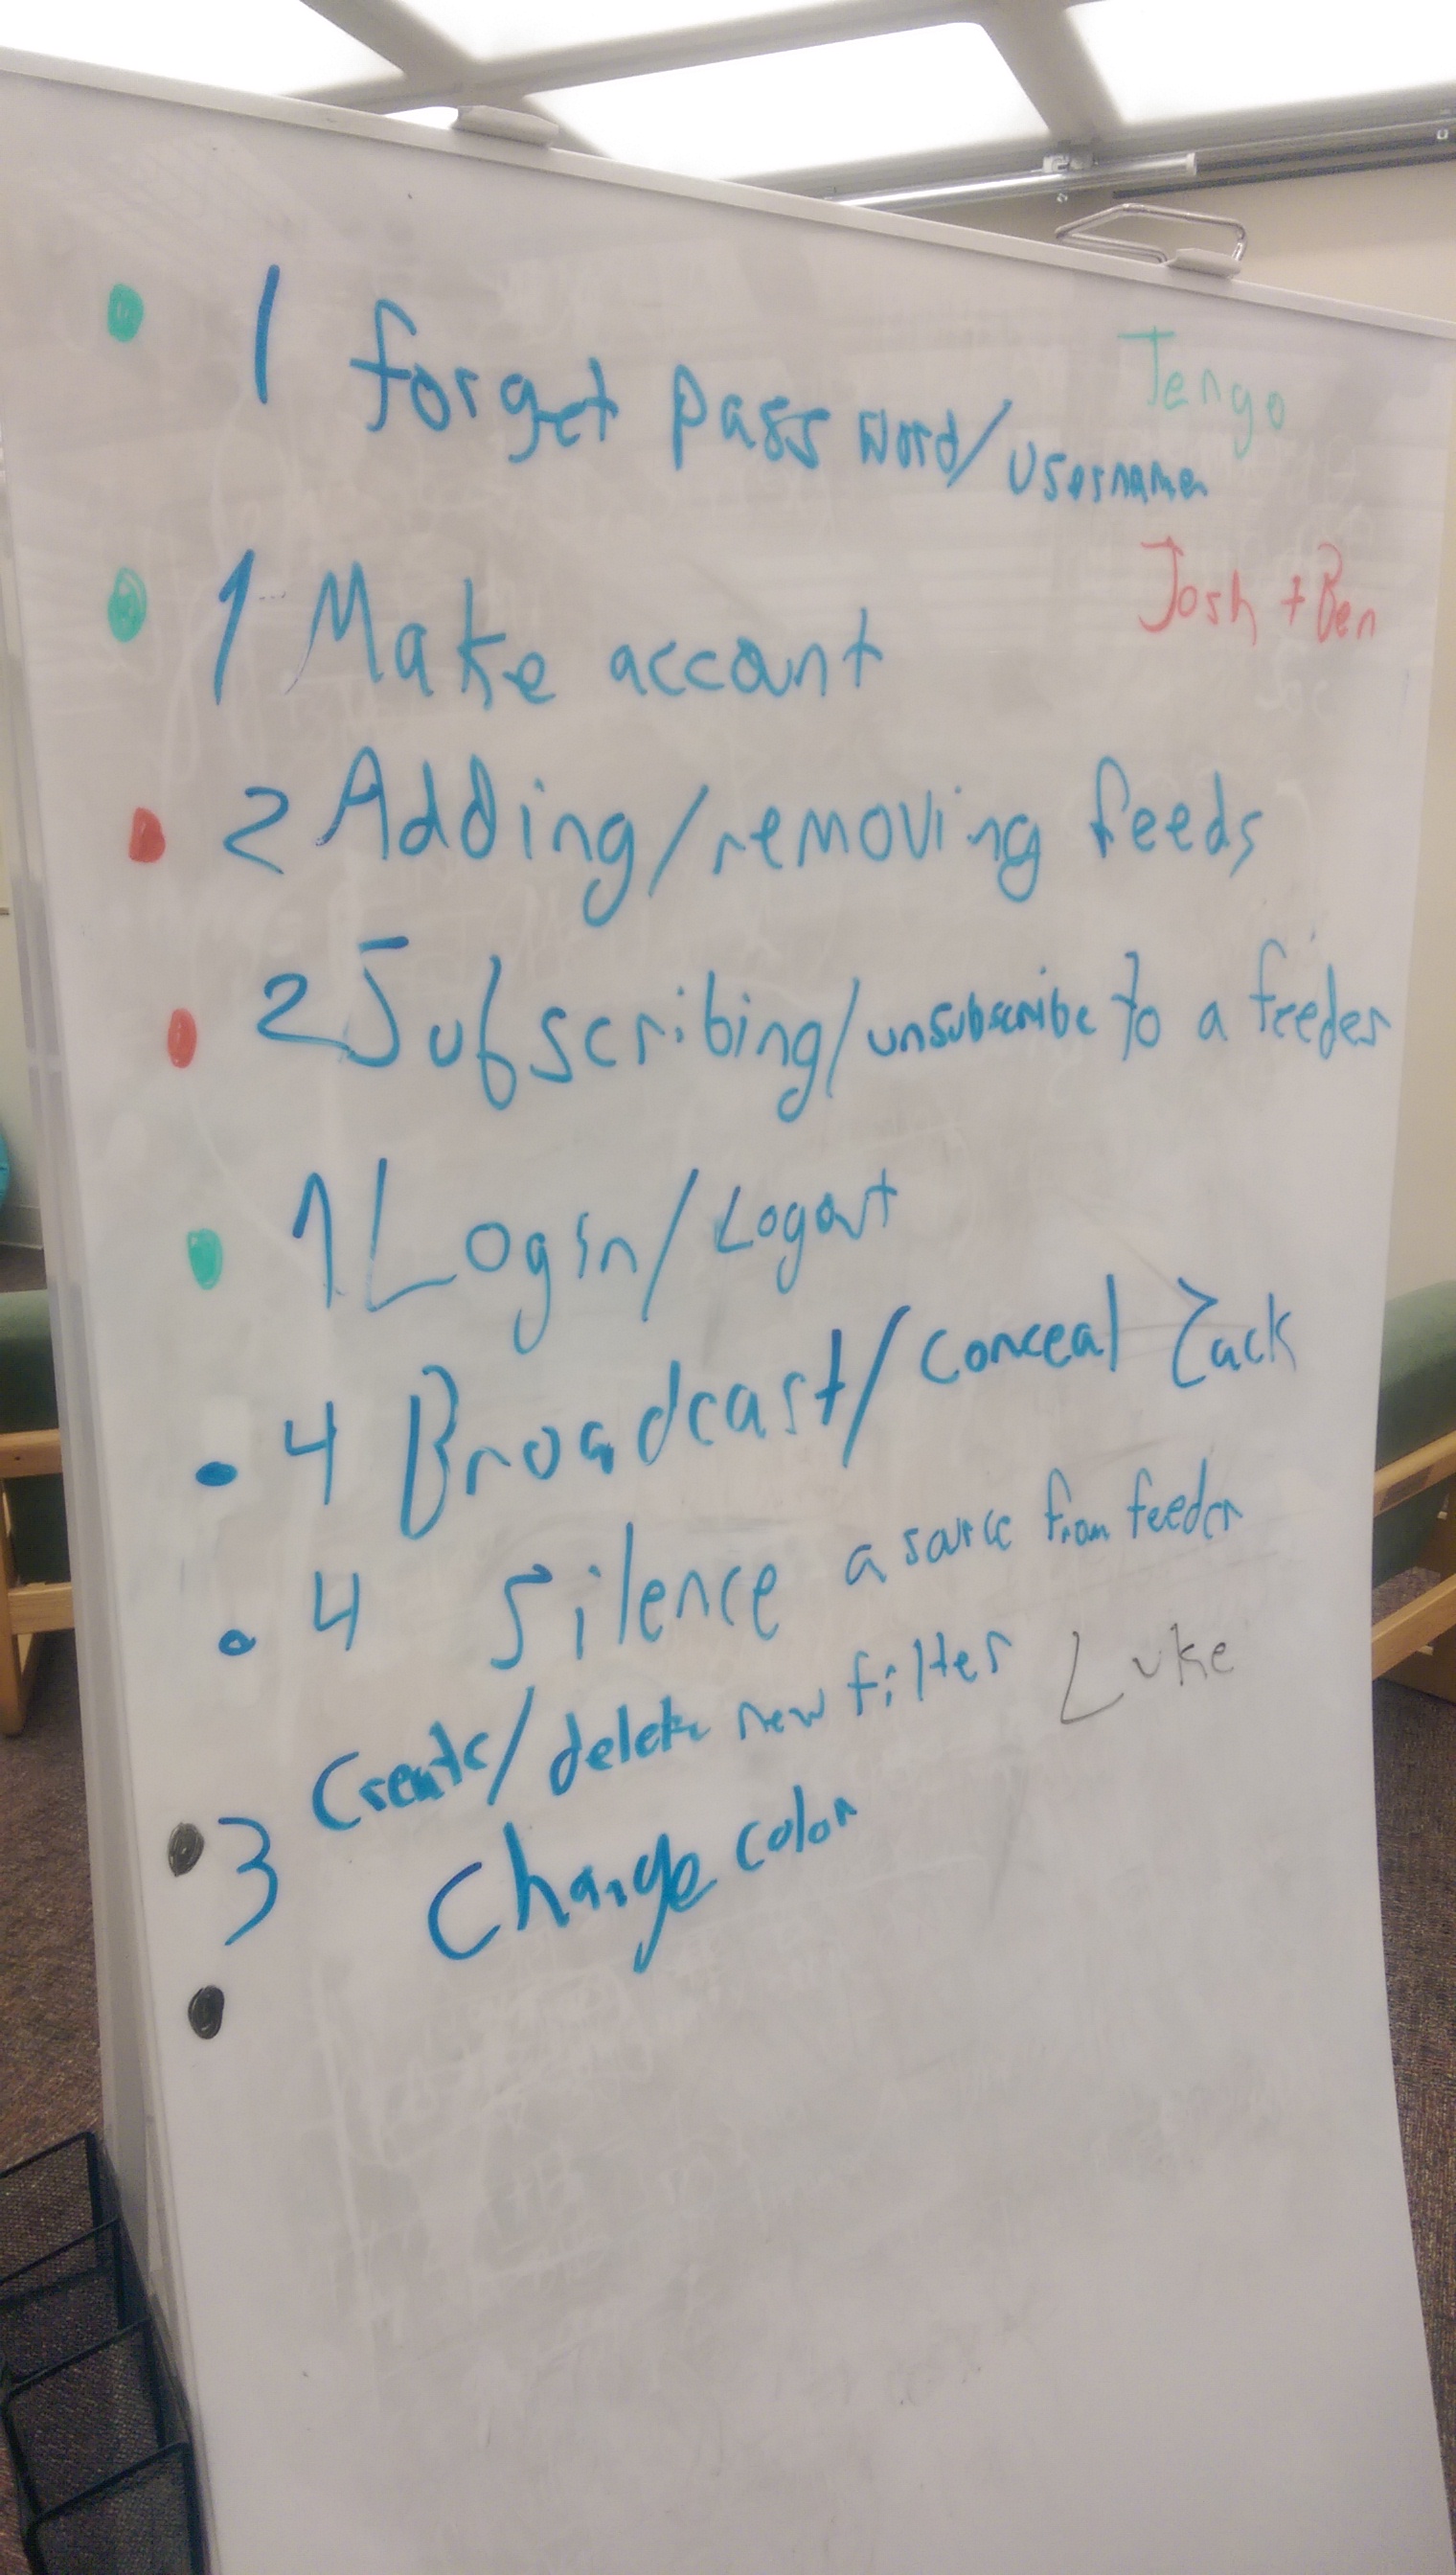 Tengo
1 forget password/username
Josh + Ben
1 Make account
2 Adding/removing feeds
2 Subscribing/unsubscribe to a feeder
1 Login/Logout
4 Broadcast/conceal Zack
4 Silence a source from feeder
Create/delete new filter Luke
3 Change color